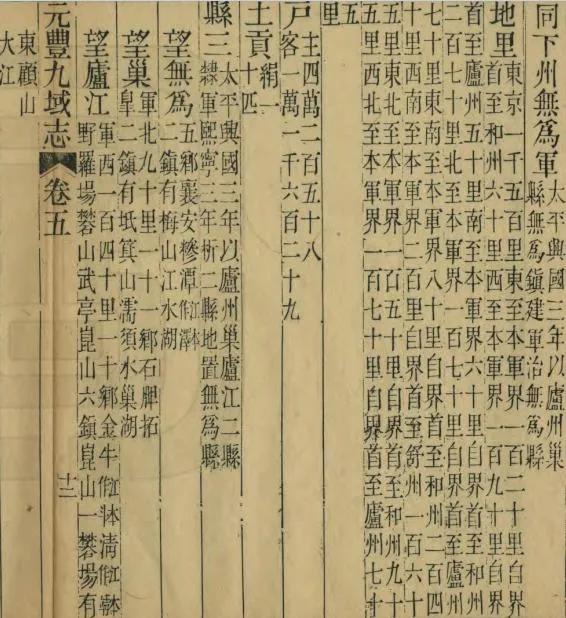 同下州無爲軍
太平興國三年以廬州巢
縣無爲鎮建軍治無爲縣
地里
東京一千五百里東至本軍界一百二十里自界
首至和州六十里西至本軍界一百九十里自界
首至廬州五十里南至本軍界六十里自界首至和州
二百七十里北至本軍界一百七十里自界首至廬州
七十里東南至本軍界八十里自界首至和州二百四
十里西南至本軍界二百里自界首至舒州一百六十
五里東北至本軍界一百五十里自界首至和州九十
五里西北至本軍界一百七十里自界首至廬州七十
五
里
戶
主四萬二百五十八
客一萬一千六百二十九
土貢
絹一
十匹
縣三
太平興國三年以廬州巢廬江二縣
隸軍熙寧三年析二縣地置無爲縣
望無爲
五鄉襄安糝潭作澤
二鎮有梅山江水湖
望巢
軍北九十里一十一鄉石牌拓
皐二鎮有坻箕山濡須水巢湖
望廬江
軍西一百四十里一十鄉金牛清
野羅場礬山武亭崑山六鎮崑山一礬場有
元豐九域志 卷五 十二
東顧山
大江